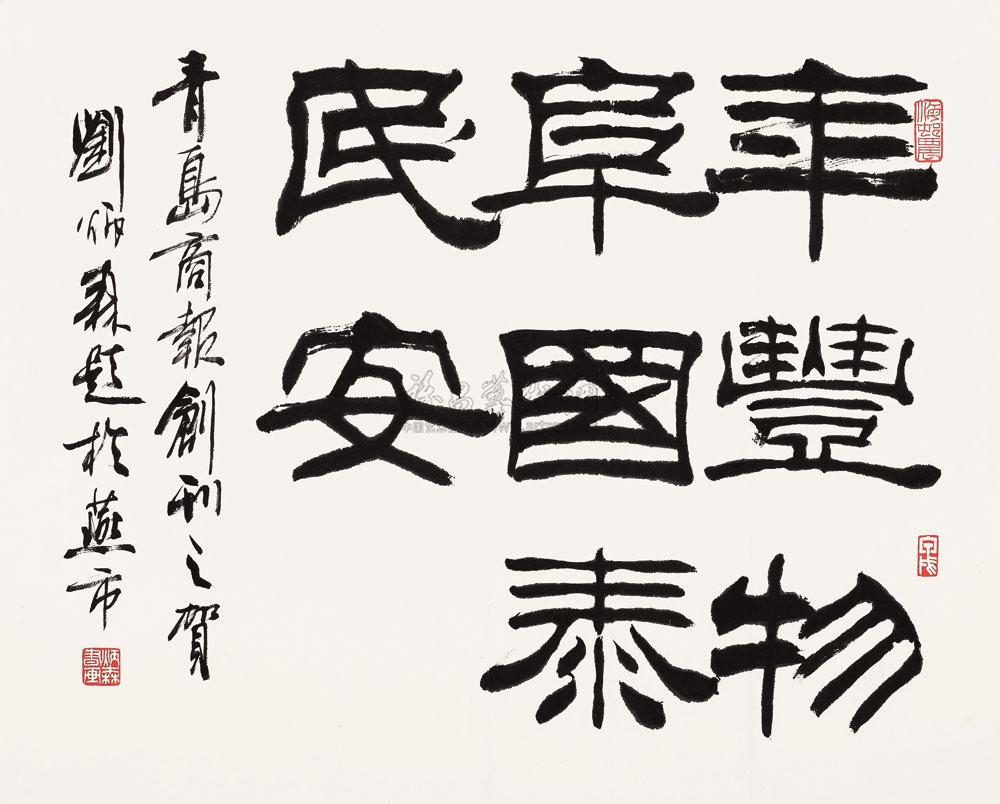 年豐物
阜國泰
民安
青島商報創刊之賀
劉炳森題於燕市
炳森書畫